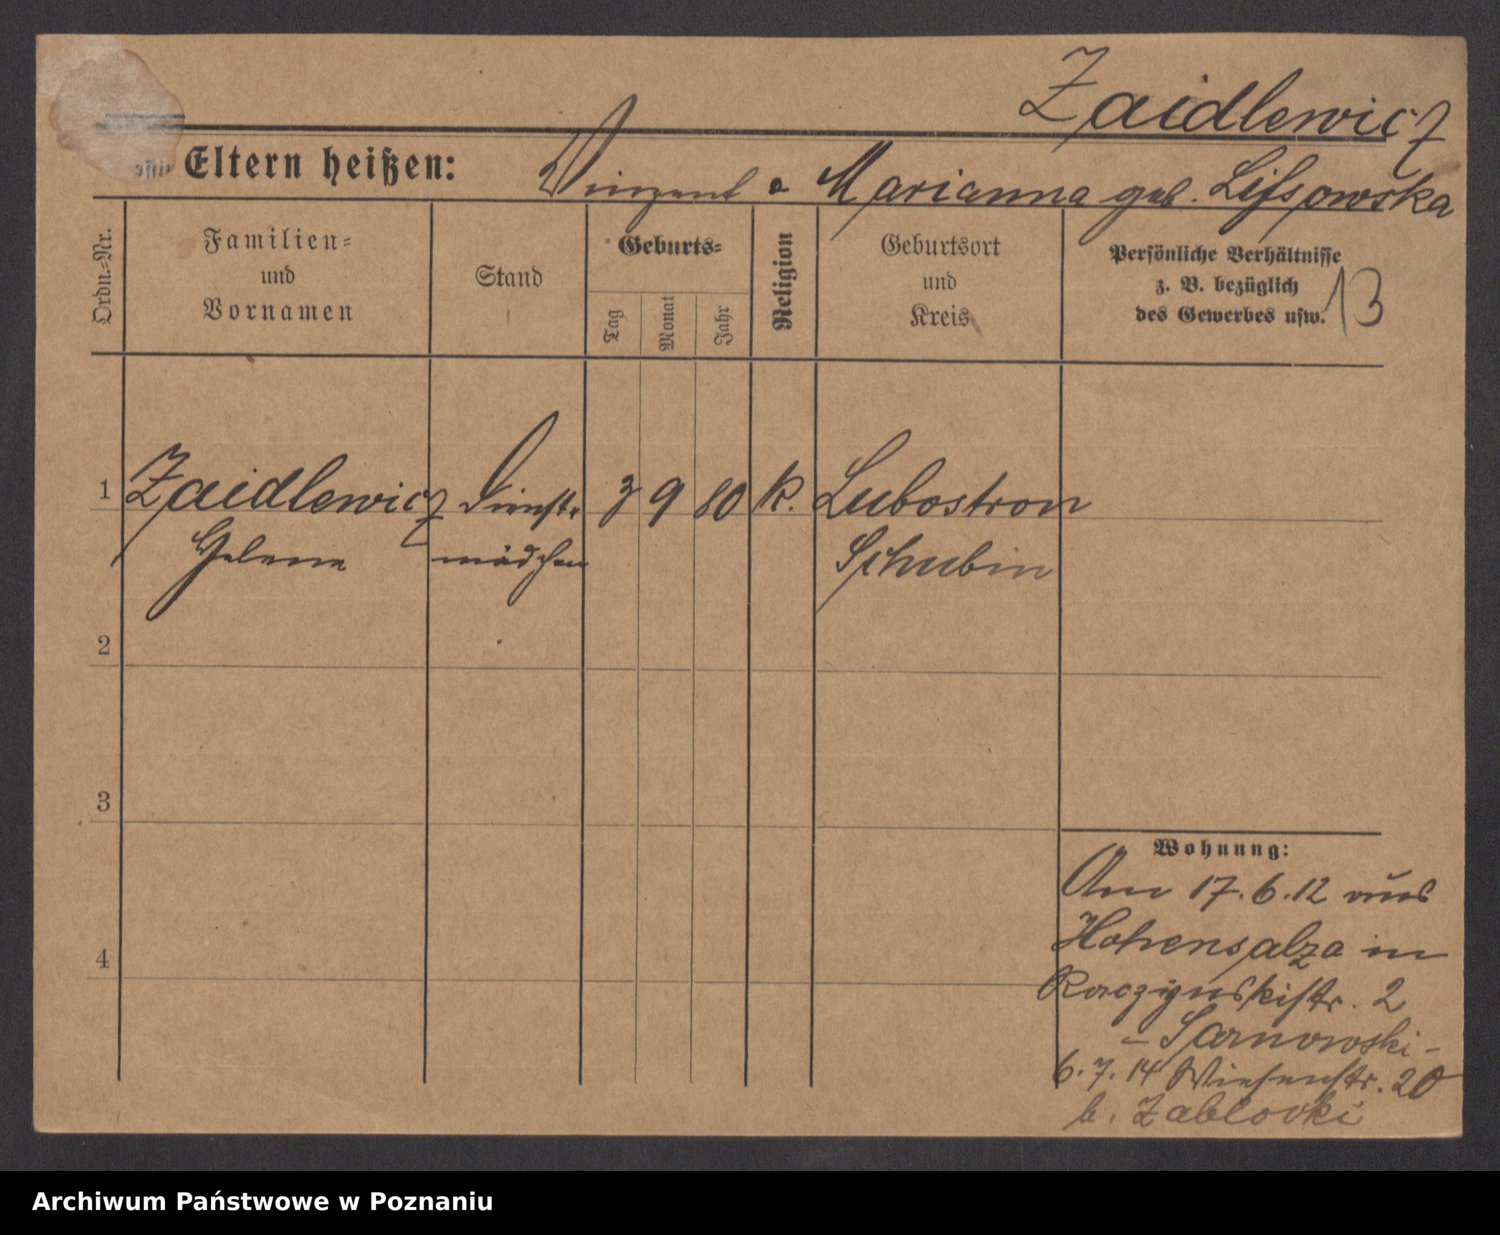 Zaidlewicz
Eltern heißen: Vinzent & Marianna geb.
Ordn.-Nr.
Familien-
und
Vornamen
Stand
Geburts-
Tag
Monat
Jahr
Religion
Geburtsort
und
Kreis
Persönliche Verhältnisse
z. B. bezüglich
des Gewerbes usw. 13
1 Zaidlewicz Dienst- 3 9 80 k. Lubostron
Helene mädchen Schubin
2
3
4
Wohnung:
Am 17.6.12 aus
Hohensalza in
Raczynskistr. 2
- Sarnowski -
6.7.14 Wiesenstr. 20
b. Zablocki